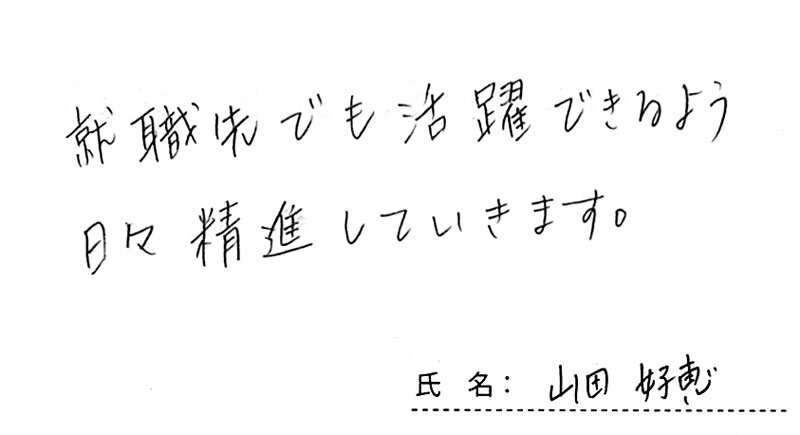 就職先でも活躍できるよう
日々精進していきます。
氏名：山田 好恵